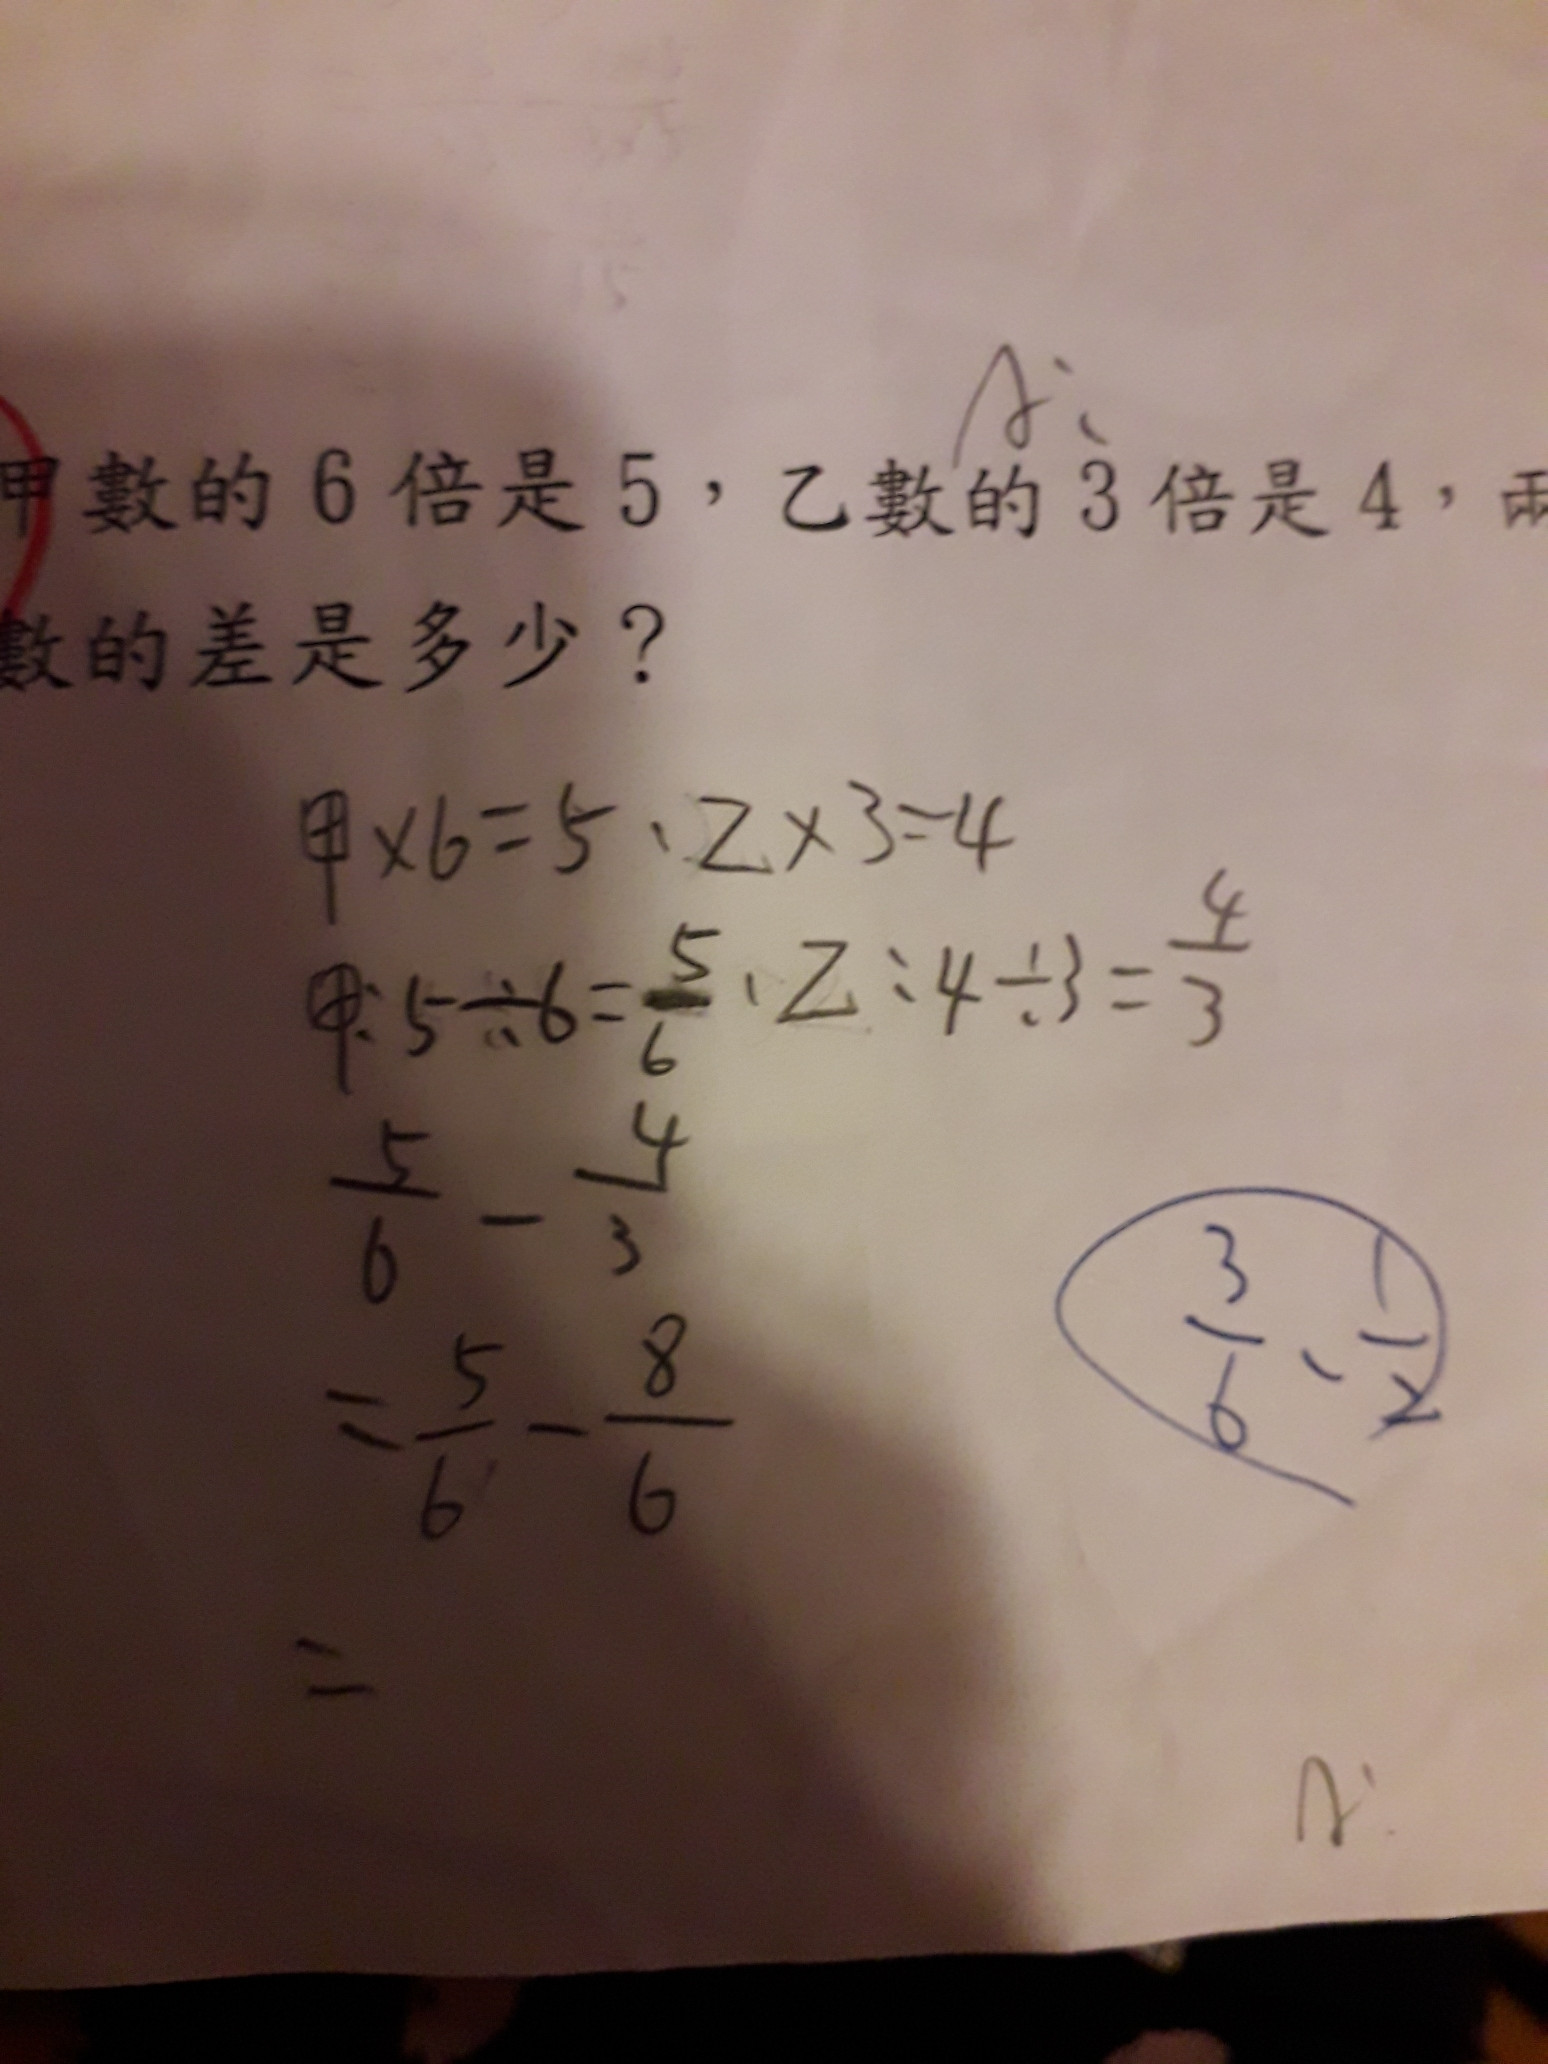 A:
甲數的6倍是5，乙數的3倍是4，兩
數的差是多少？
甲×6=5、乙×3=4
甲:5÷6=5/6、乙:4÷3=4/3
5/6-4/3
=5/6-8/6
3/6、1/2
=
A: